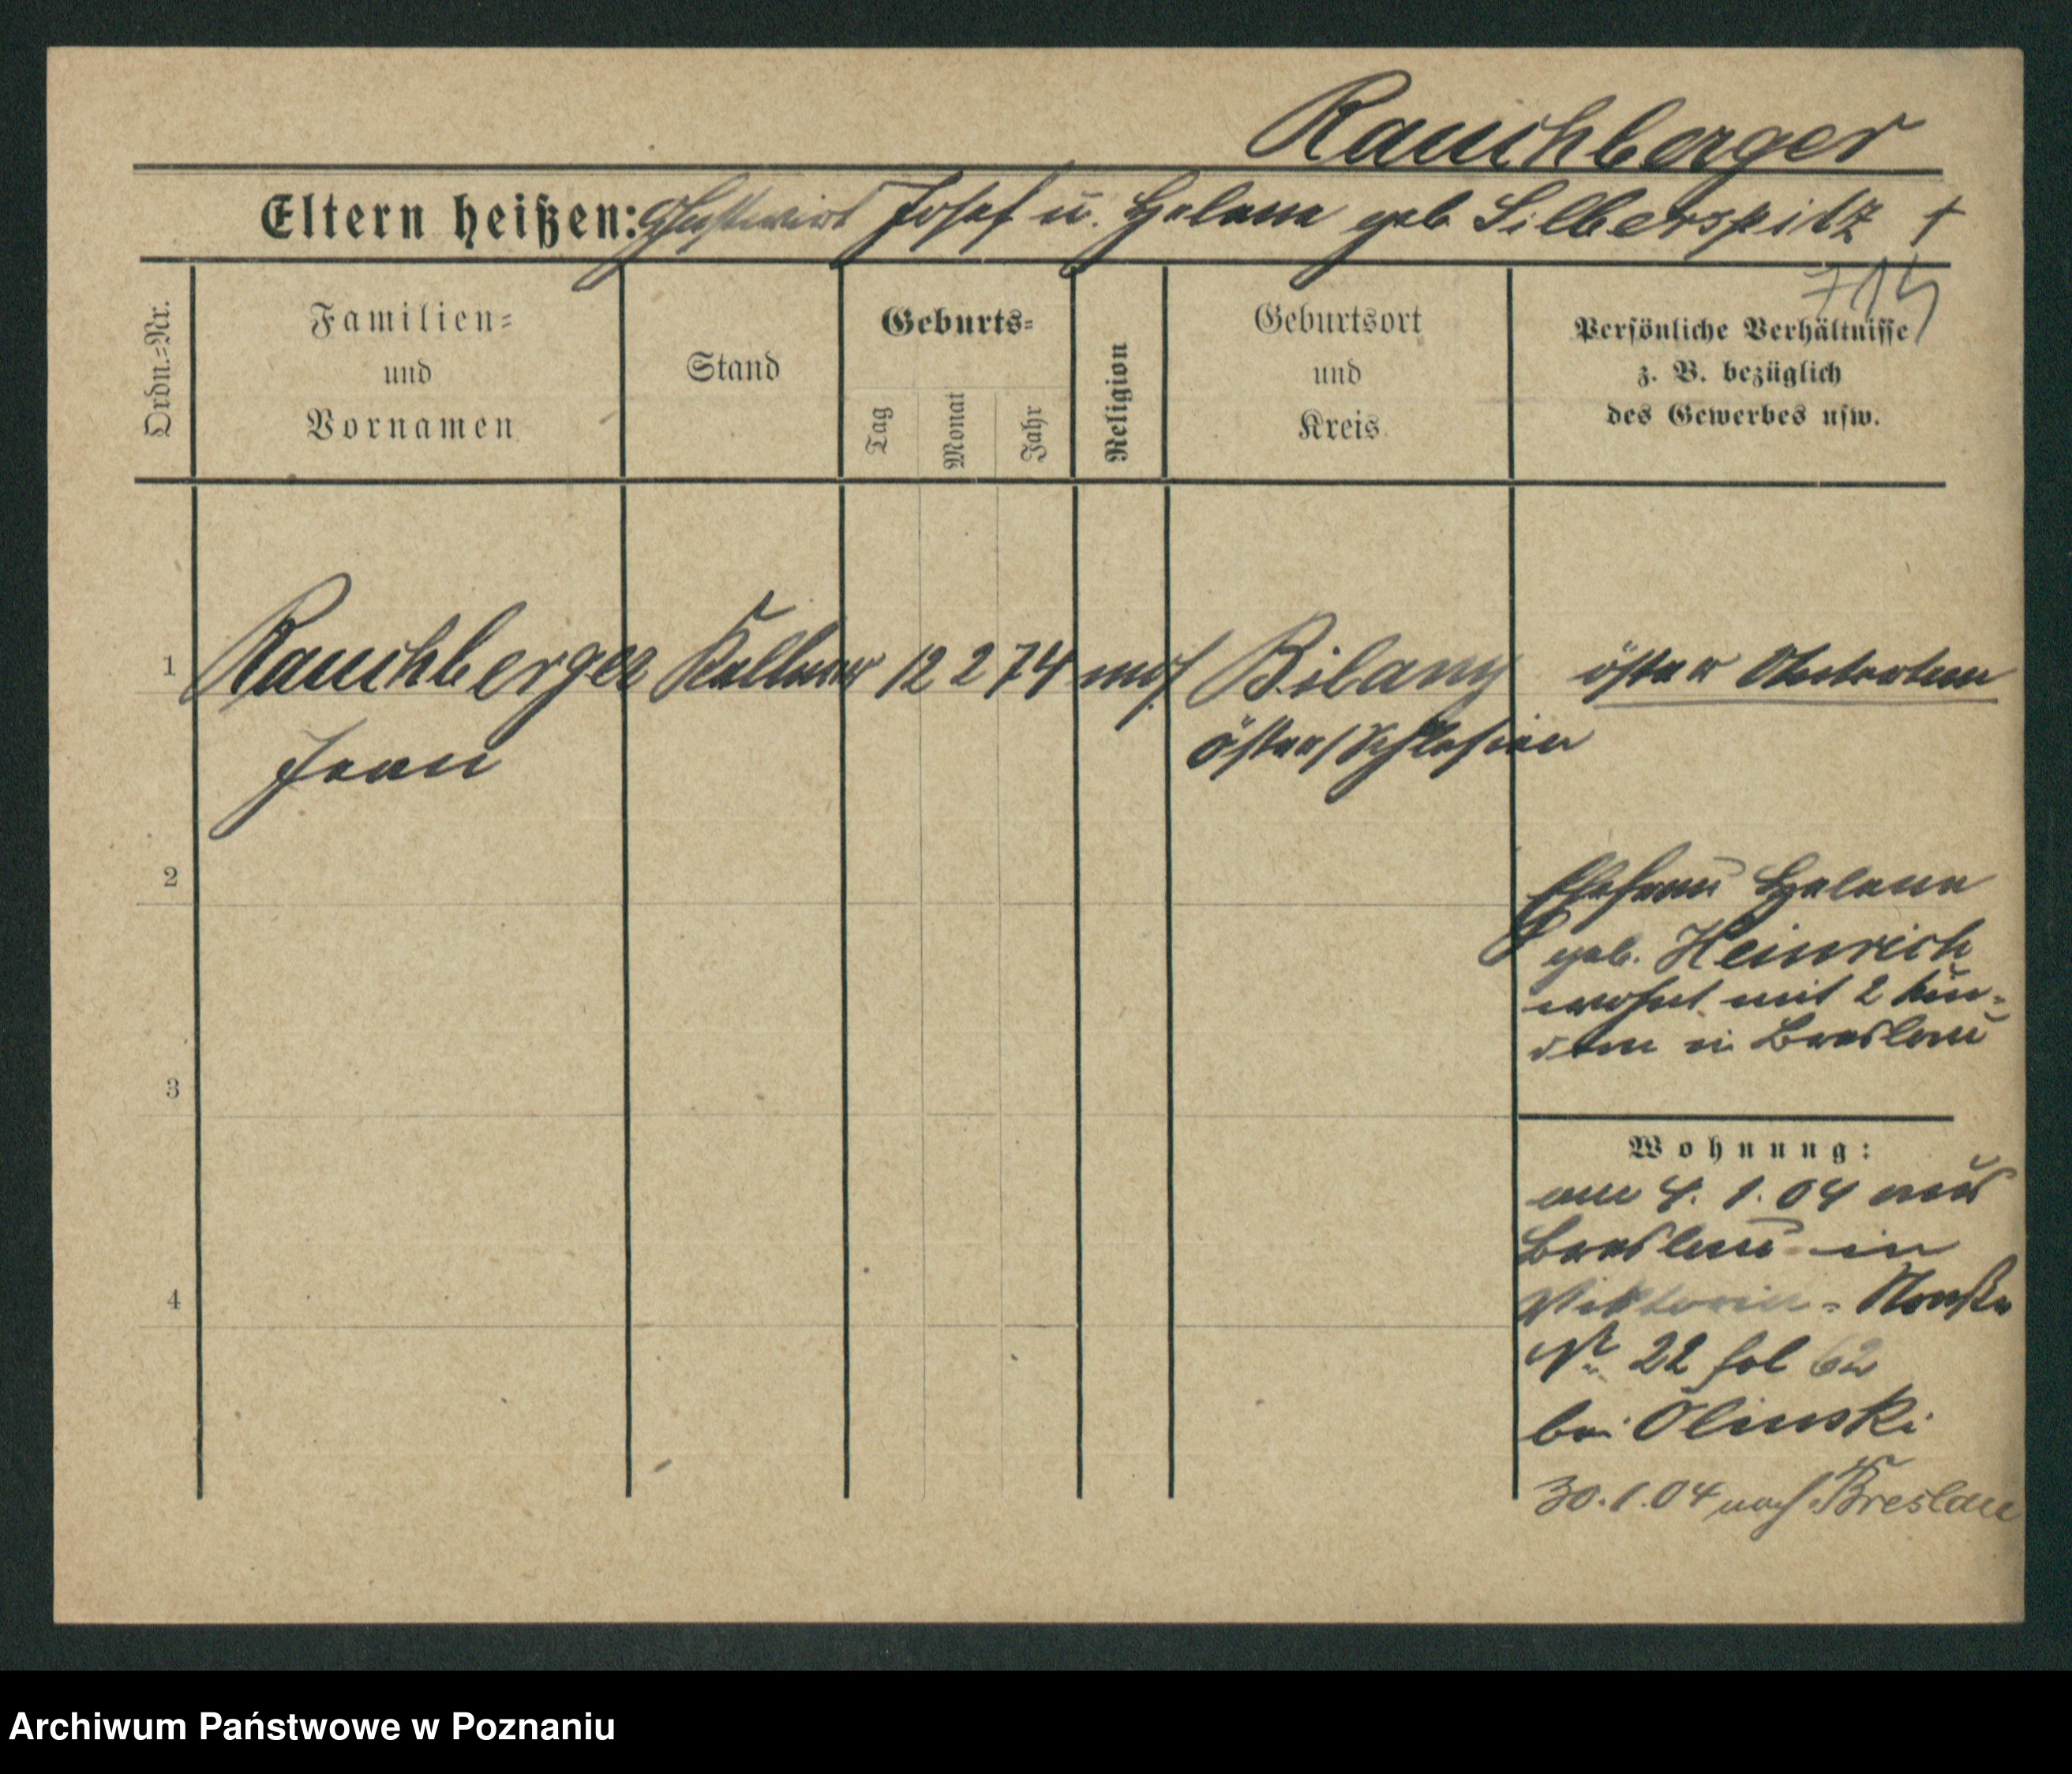 Rauchberger
Eltern heißen: Gastwirt Josef u. Helene geb Silberspitz †
Ordn.-Nr.
Familien-
und
Vornamen
Stand
Geburts-
Tag
Monat
Jahr
Religion
Geburtsort
und
Kreis
Persönliche Verhältnisse
z. B. bezüglich
des Gewerbes usw.
1
Rauchberger Kellner 12 2 74 mos Bilany öster
Jean
österr/Schlesien
2
Ehefrau Helene
geb. Heinrich
wohnt mit 2 Kin-
dern in Breslau
3
Wohnung:
am 4. 1. 04 aus
Breslau in
4
Viktoria-Straße
No 22 fol 62
bei Olinski
30.1.04 nach Breslau
Archiwum Państwowe w Poznaniu